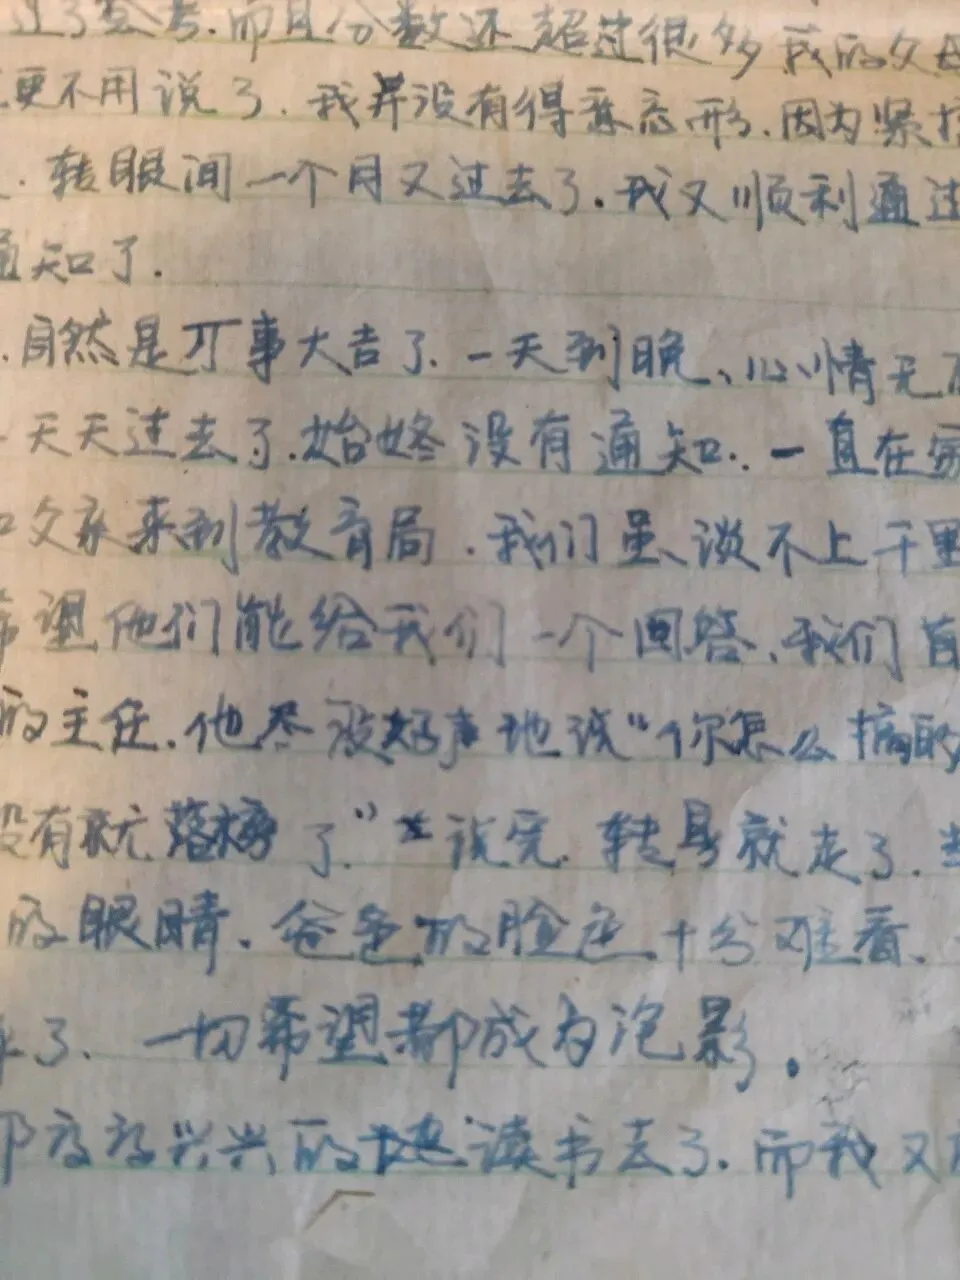 过了会考.而且分数还超过很多.我的父母
更不用说了.我并没有得意忘形.因为紧接
.转眼间一个月又过去了.我又顺利通过
通知了.
.自然是万事大吉了.一天到晚、心情无
一天天过去了.始终没有通知..一直在家
父亲来到教育局.我们虽谈不上千里
希望他们能给我们一个回答、我们首
的主任.他尽没好声地说“你怎么搞的
没有就落榜了.”说完.转身就走了.当
的眼睛.爸爸的脸色十分难看、
了.一切希望都成为泡影.
高高兴兴的读书去了.而我又